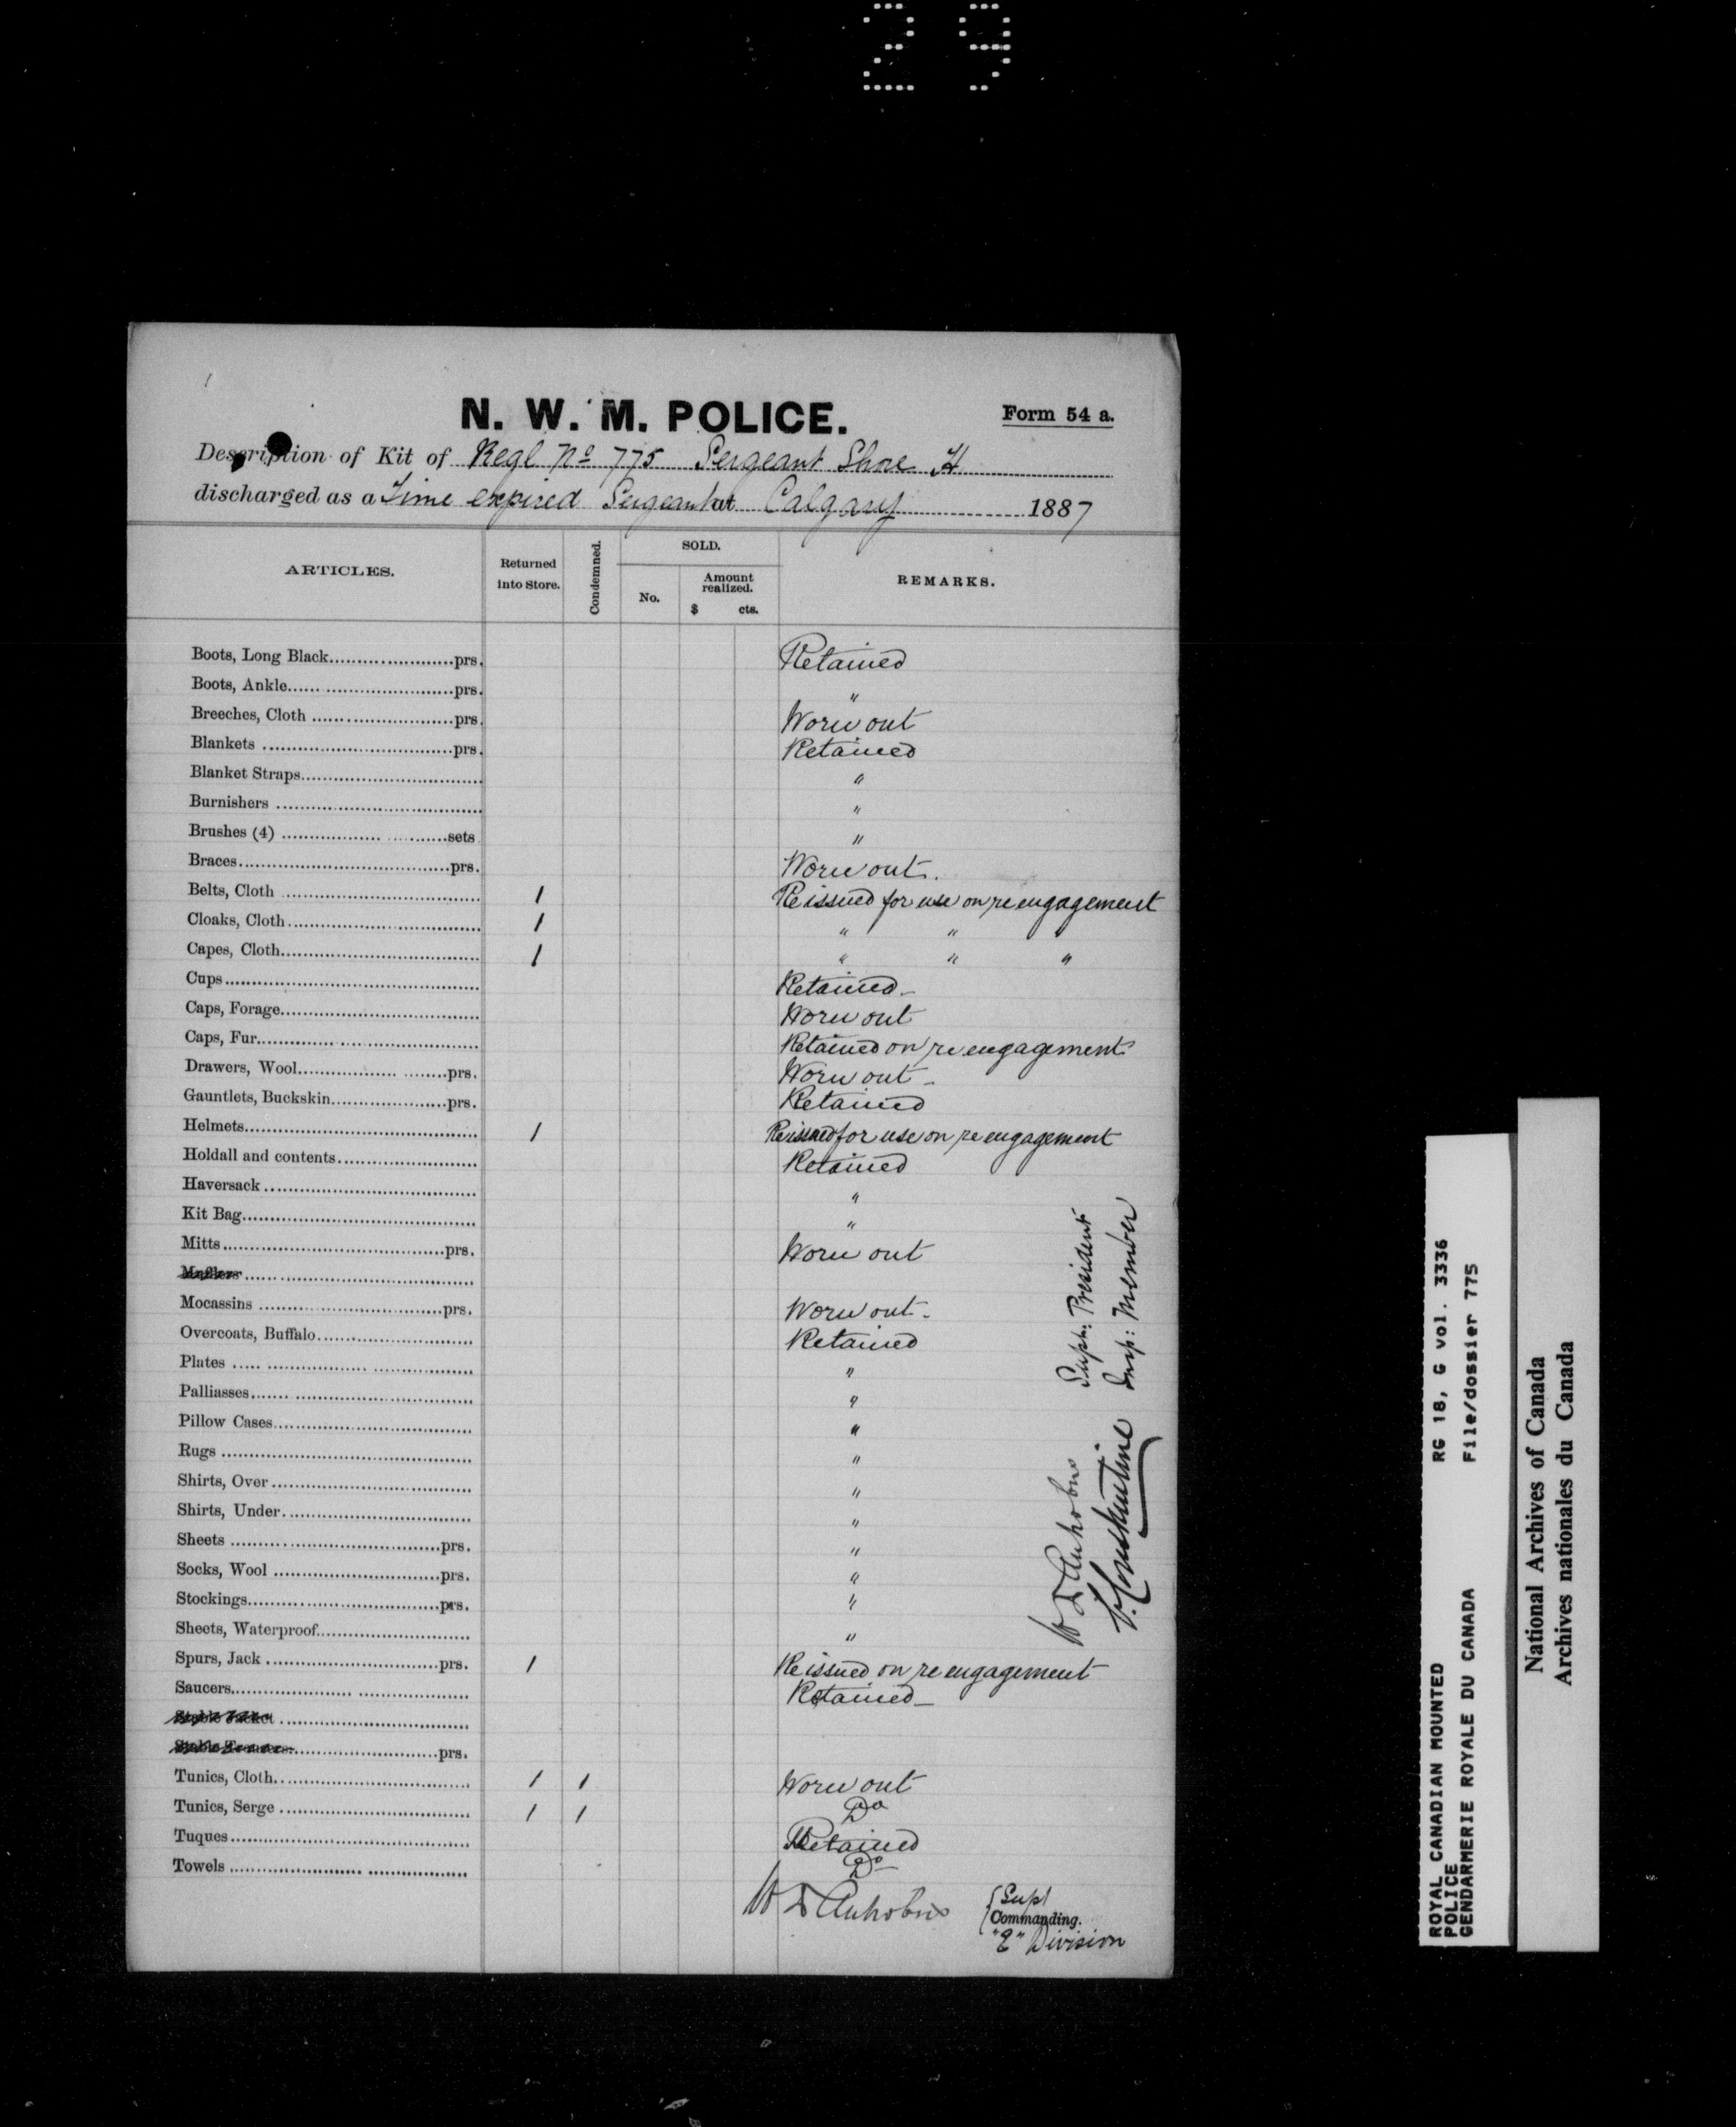 29
N. W. M. POLICE.
Form 54 a.
Description of Kit of Regl No 775 Sergeant Shore H
discharged as a Time expired Sergeant at Calgary 1887
ARTICLES. Returned into Store. Condemned. SOLD. No. Amount realized. $ cts. REMARKS.
Boots, Long Black prs. Retained
Boots, Ankle prs. "
Breeches, Cloth prs. Worn out
Blankets prs. Retained
Blanket Straps "
Burnishers "
Brushes (4) sets "
Braces prs. Worn out.
Belts, Cloth 1 Reissued for use on re engagement
Cloaks, Cloth 1 " " "
Capes, Cloth 1 " " "
Cups Retained
Caps, Forage Worn out
Caps, Fur Retained on re engagement
Drawers, Wool prs. Worn out
Gauntlets, Buckskin prs. Retained
Helmets 1 Reissued for use on re engagement
Holdall and contents Retained
Haversack "
Kit Bag "
Mitts prs. Worn out
Mocassins prs. Worn out
Overcoats, Buffalo Retained
Plates "
Palliasses "
Pillow Cases "
Rugs "
Shirts, Over "
Shirts, Under "
Sheets prs. "
Socks, Wool prs. "
Stockings prs. "
Sheets, Waterproof "
Spurs, Jack prs. 1 Reissued on re engagement
Saucers Retained
prs.
Tunics, Cloth 1 1 Worn out
Tunics, Serge 1 1 Do
Tuques Retained
Towels Do
W D Antrobus Supt Commanding. "E" Division
W D Antrobus Supt: President
C. Constantine Insp: Member
ROYAL CANADIAN MOUNTED POLICE RG 18, G vol. 3336
GENDARMERIE ROYALE DU CANADA File/dossier 775
National Archives of Canada
Archives nationales du Canada